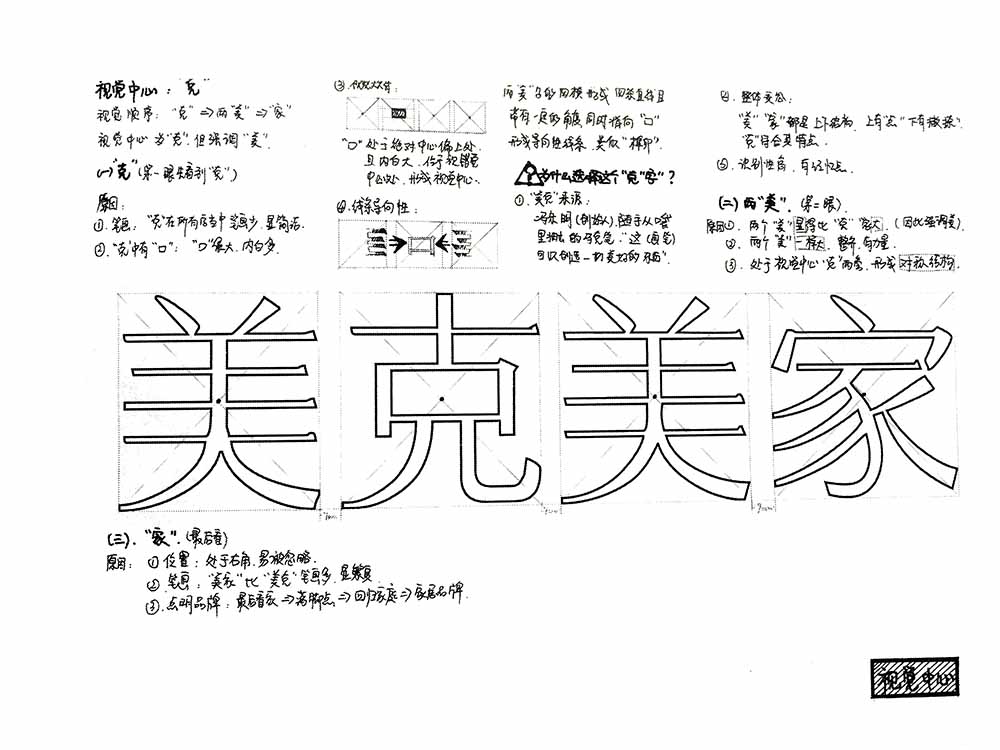 视觉中心："克"
视觉顺序："克"⇒两"美"⇒"家"
视觉中心为"克"，但强调"美".
(一)"克"(第一眼先看到"克")
原因：
①.笔画："克"在所有字中笔画少,显简洁.
②."克"中有"口"："口"最大、内白多.
③.
"口"处于绝对中心偏上处,
且内白大、位于视错觉
中心处,形成视觉中心.
④.线条导向性：
两"美"字的四横形成四条直线且
带有一定的角度,同时指向"口"
形成导向性线条,类似"榫卯".
为什么选择这个"克"字？
①."美克"来源：
冯东明(创始人)随手从嘴
里拥出的马克笔."这(马克笔)
可以创造一切美好的东西".
④.整体灵松：
"美""家"都是上下结构,上有"点"下有"撇捺".
"克"符合其特点.
⑤.识别性高,有记忆点.
(二)两"美".(第二眼)
原因①.两个"美"显得比"克"字大.(因此强调美)
②.两个"美"一样大,整齐,有力量.
③.处于视觉中心"克"两旁,形成对称结构.
美克美家
(三)."家".(最后看)
原因：①位置：处于右角,易被忽略.
②.笔画："美家"比"美克"笔画多,显繁复
③.点明品牌：最后看家⇒落脚点⇒回归家庭⇒家居品牌.
视觉中心